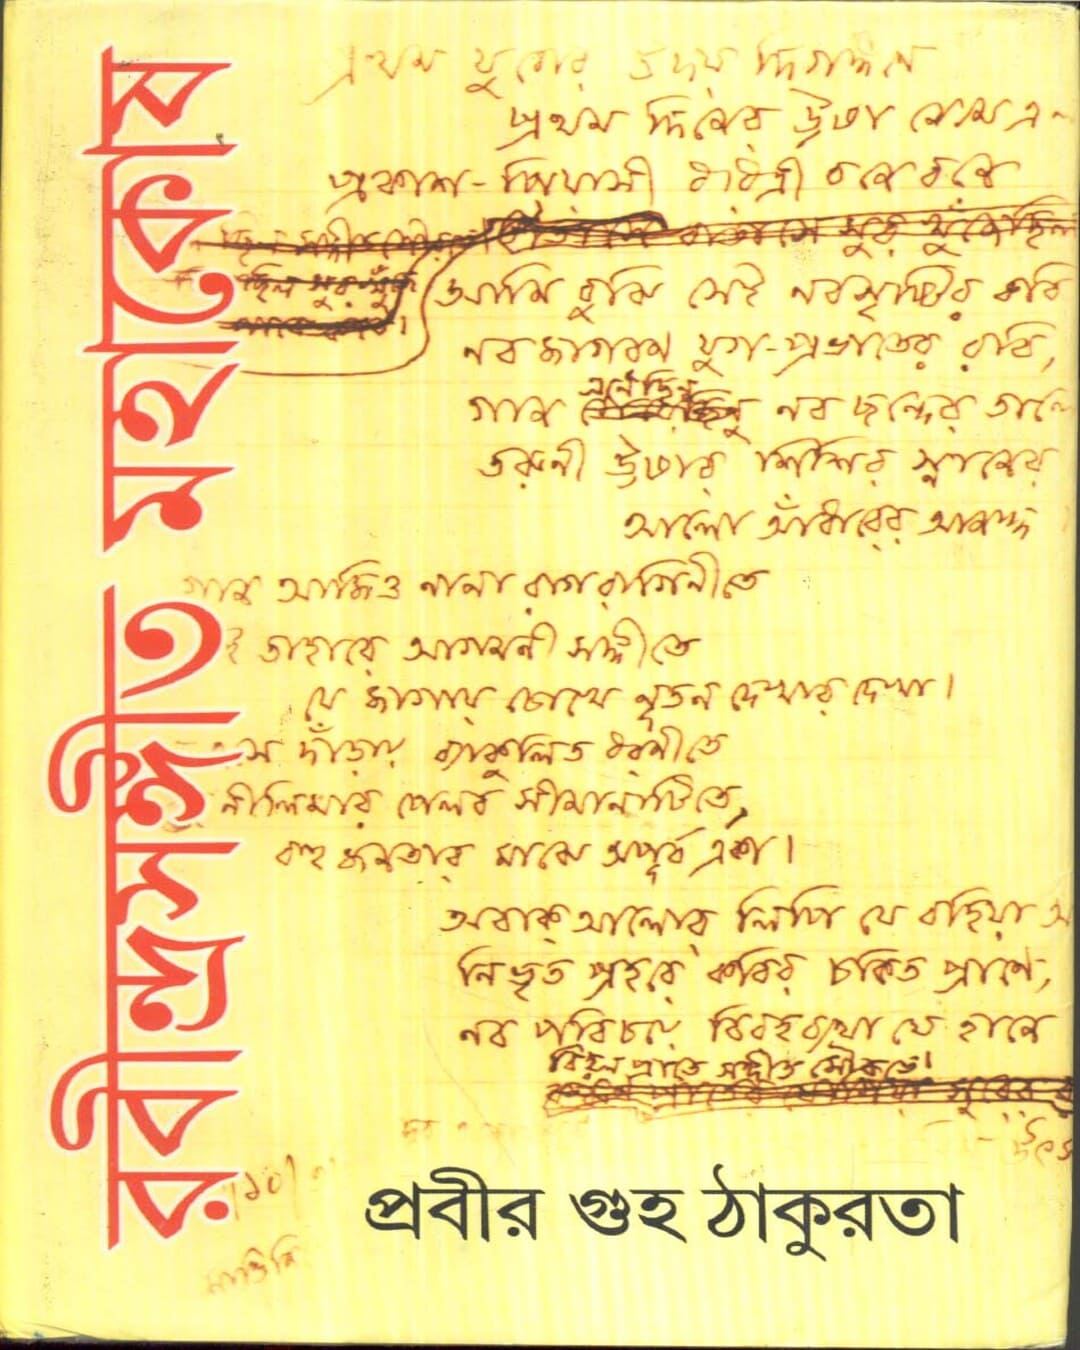 রবীন্দ্রসঙ্গীত মহাকোষ
প্রথম যুগের উদয় দিগঙ্গনে
প্রথম দিনের উষা নেমে এল
প্রকাশ-পিয়াসী ধরিত্রী বনে বনে
বাতাসে সুর খুঁজেছিল
ছিল সুর খুঁজে
আমি বুঝি সেই নবসৃষ্টির কবি
নব জাগরণ যুগ-প্রভাতের রবি,
গান এনেছিনু নব ছন্দের তালে
তরুণী উষার শিশির স্নানের
আলো আঁধারের আনন্দ
গান আজিও নানা রাগরাগিনীতে
ই তাহারে আগমনী সঙ্গীতে
যে জাগায় চোখে নূতন দেখার দেখা।
স দাঁড়ায় ব্যাকুলিত ধরণীতে
নীলিমার পেলব সীমানাটিতে,
বহু জনতার মাঝে অপূর্ব একা।
অবাক্ আলোর লিপি যে বহিয়া আ
নিভৃত প্রহরে কবির চকিত প্রাণে,
নব পরিচয়ে বিরহব্যথা যে হানে
বিহ্বল প্রাতে সঙ্গীত সৌরভে।
সুরের
প্রবীর গুহ ঠাকুরতা